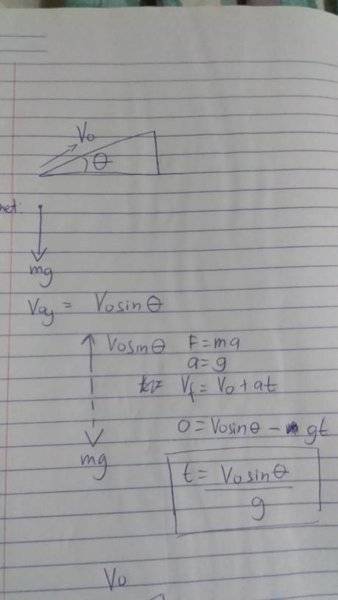 V0
θ
net:
mg
V0y = V0sinθ
V0sinθ F=ma
a=g
Vf = V0 + at
0 = V0sinθ - gt
mg
t = V0sinθ
g
V0